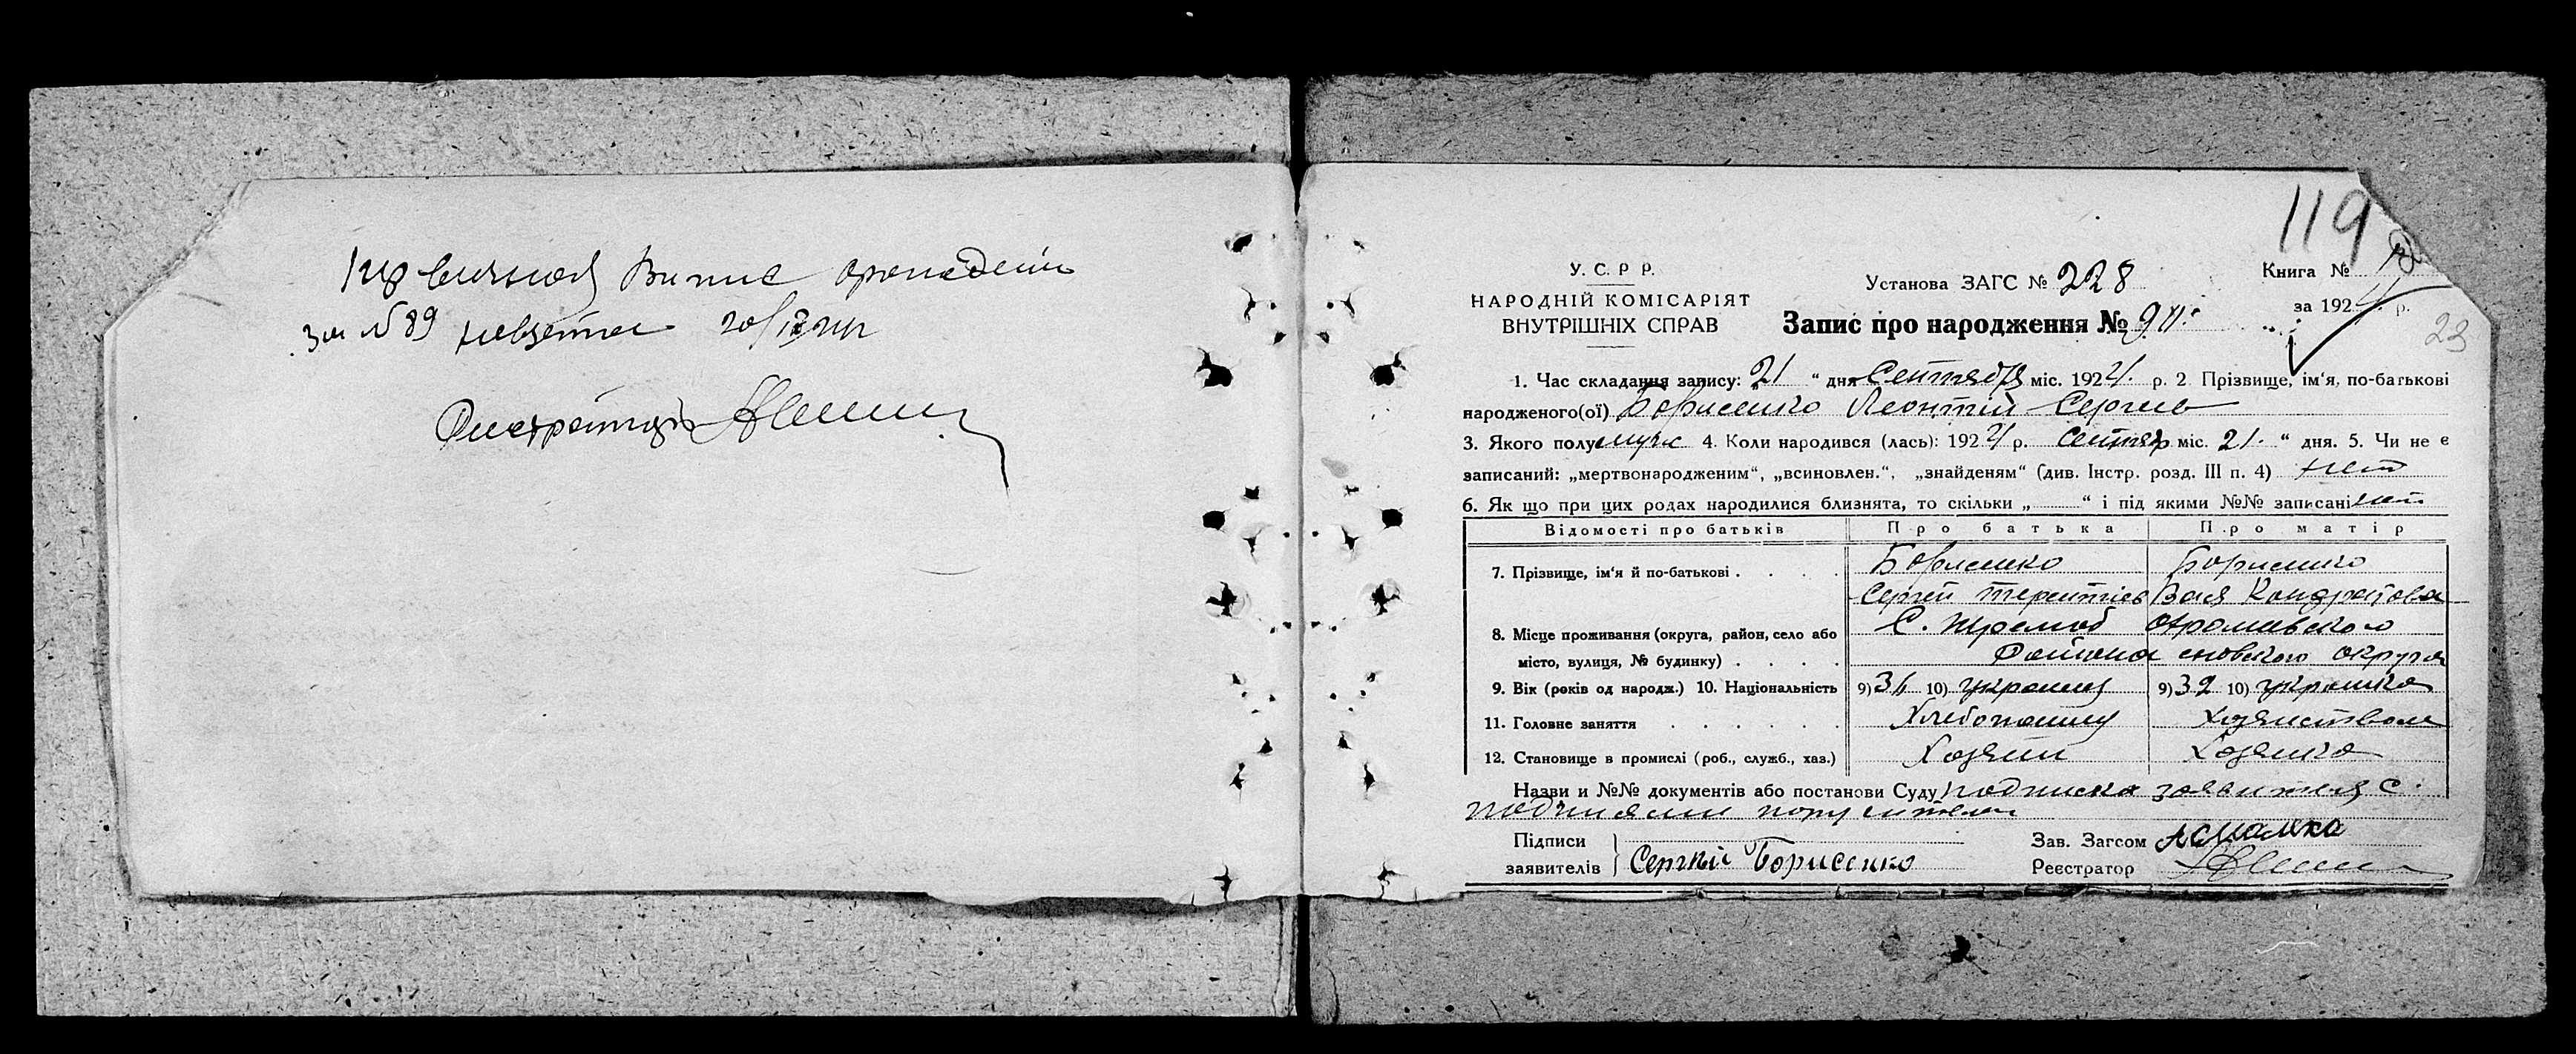 Первичная Выпис
за № 89
20/IX 24г
119
У. С. Р Р.
НАРОДНІЙ КОМІСАРІЯТ
ВНУТРІШНІХ СПРАВ
Установа ЗАГС № 228
Запис про народження № 90
Книга №
за 1924 р.
23
1. Час складання запису: 21 “ дня Сентября міс. 1924. р. 2 Прізвище, ім‘я, по-батькові
народженого(ої) Борисенко Леонтий Сергеев
3. Якого полу муж 4. Коли народився (лась): 1924 р. Сентяб міс. 21. “ дня. 5. Чи не є
записаний: „мертвонародженим“, „всиновлен.“, „знайденям“ (див. Інстр. розд. III п. 4) нет
6. Як що при цих родах народилися близнята, то скільки „ “ і під якими №№ записані нет
Відомості про батьків Про батька Про матір
7. Прізвище, ім‘я й по-батькові . . . . Борисенко Борисенко
Сергей Терентиев Кондратова
8. Місце проживання (округа, район, село або С.
місто, вулиця, № будинку) . . . . Района сновского округа
9. Вік (років од народж.) 10. Національність 9) 34 10) украинец 9) 32 10) украинка
11. Головне заняття . . . . . . Хлебопашец Хозяйством
12. Становище в промислі (роб., служб., хаз.) Хозяин Хозяйка
Назви и №№ документів або постанови Суду подписка заявителя с
подписями поручителей
Підписи
заявителів Сергій Борисенко
Зав. Загсом
Реєстратор